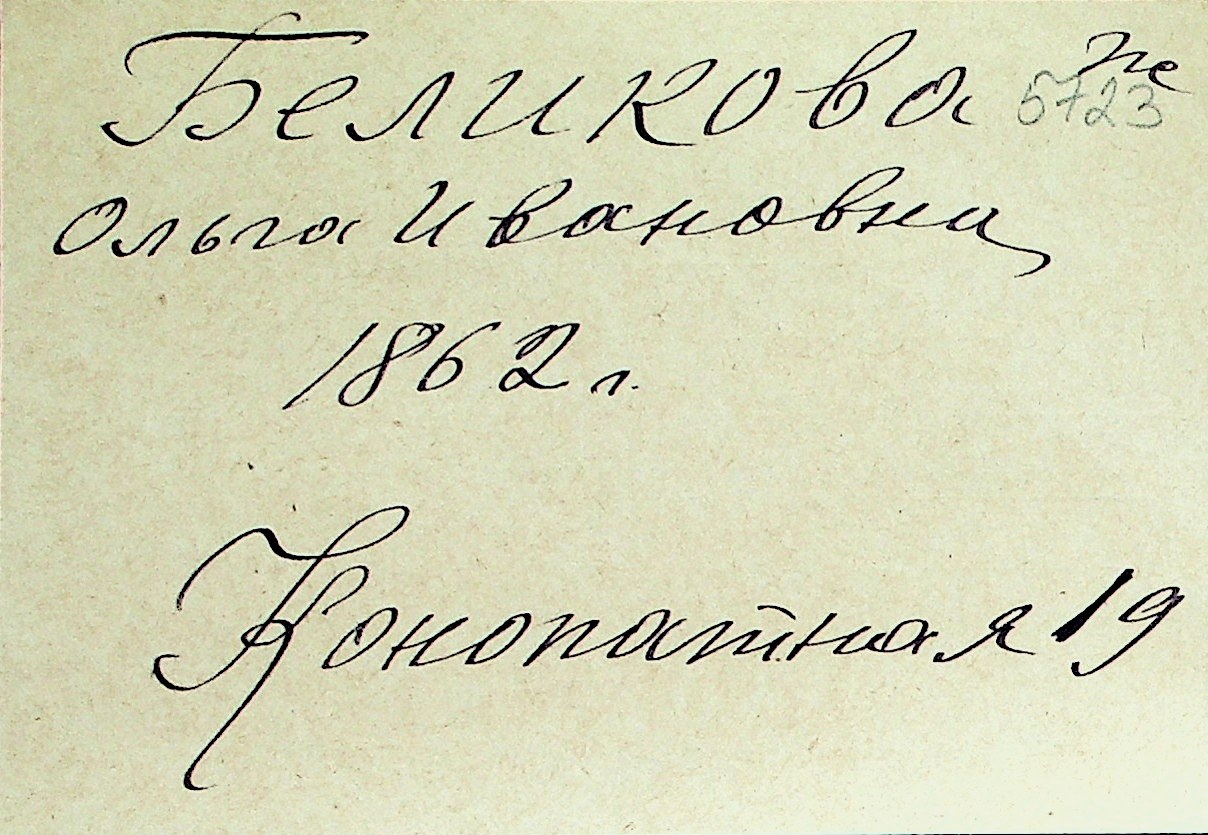 Беликова
5723
Ольга Ивановна
1862 г.
Конопатная 19